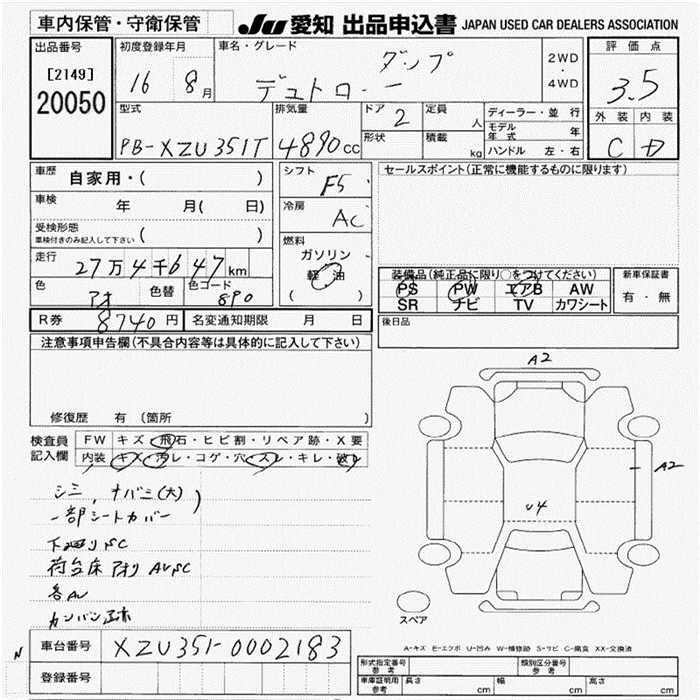 車内保管・守衛保管
JU 愛知 出品申込書 JAPAN USED CAR DEALERS ASSOCIATION
出品番号
[2149]
20050
初度登録年月
16 8月
車名・グレード
ダンプ
デュトロ
2WD
・
4WD
評価点
3.5
外装 内装
C D
型式
PB-XZU351T
排気量
4890cc
ドア
2
形状
定員
人
積載
kg
ディーラー・並行
モデル年式 年
ハンドル 左・右
車歴
自家用・( )
車検
年 月( 日)
受検形態
車検付きのみ記入して下さい
( )
走行
27万4千647km
色
アオ
色替
色コード
890
R券 8740円
名変通知期限 月 日
シフト
F5
冷房
AC
燃料
ガソリン
軽油
( )
セールスポイント(正常に機能するものに限ります)
装備品(純正品に限り○をつけてください)
PS PW エアB AW
SR ナビ TV カワシート
新車保証書
有・無
後日品
注意事項申告欄(不具合内容等は具体的に記入して下さい)
修復歴 有 (箇所 )
検査員
記入欄
FW キズ・飛石・ヒビ割・リペア跡・X要
内装 キズ・汚レ・コゲ・穴・スレ・キレ・破レ
シミ, ナバミ(大)
一部シートカバー
下廻りSC
荷台床アオリAUSC
各AU
カンバン
A2
A2
U4
スペア
A-キズ E-エクボ U-凹み W-補修跡 S-サビ C-腐食 XX-交換済
N
車台番号 XZU351-0002183
登録番号
形式指定番号
参考
類別区分番号
参考
車庫証明用
参考
長さ cm
幅 cm
高さ cm